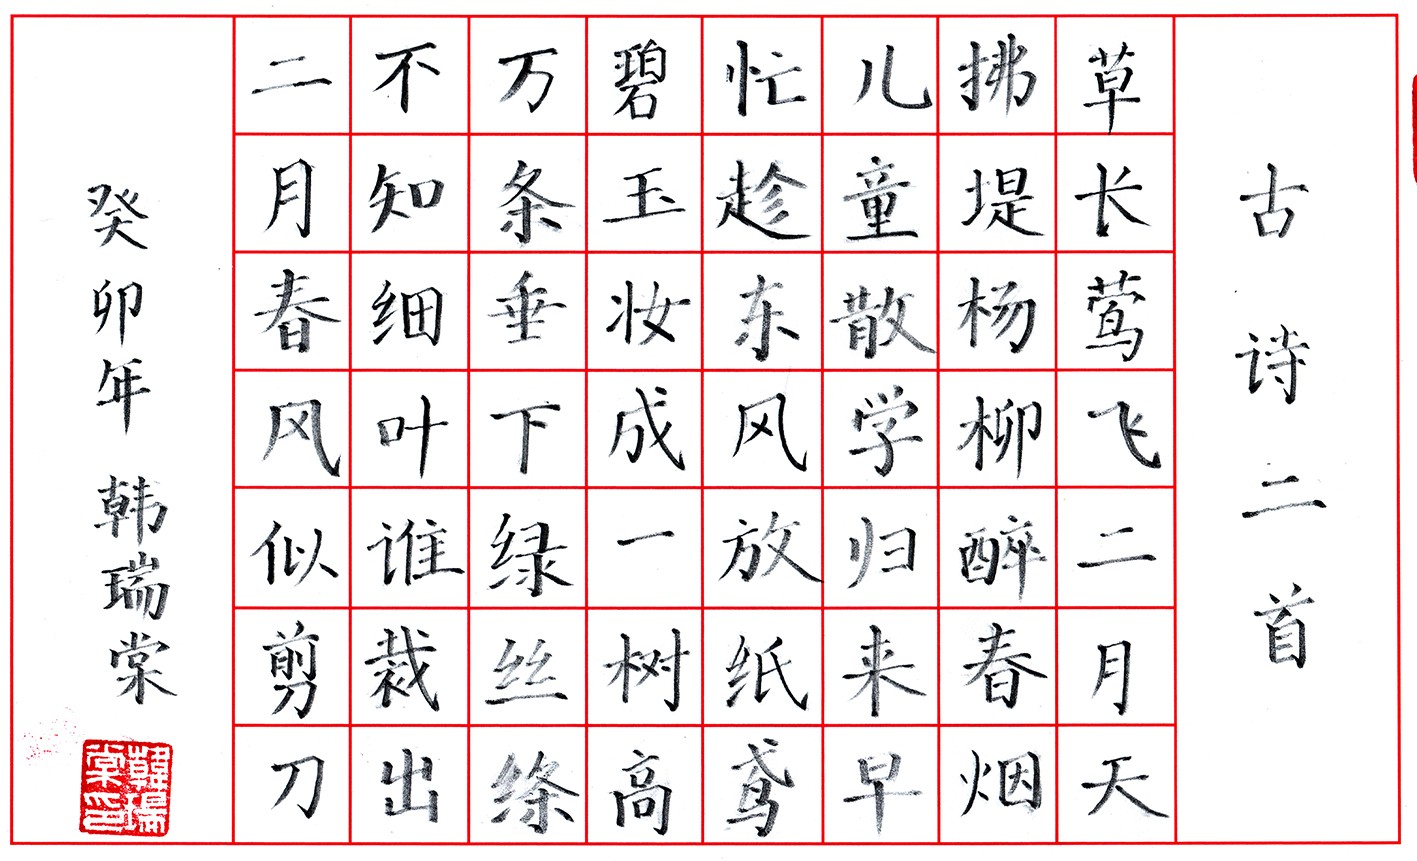 古诗二首
草长莺飞二月天
拂堤杨柳醉春烟
儿童散学归来早
忙趁东风放纸鸢
碧玉妆成一树高
万条垂下绿丝绦
不知细叶谁裁出
二月春风似剪刀
癸卯年 韩瑞棠
韓瑞棠印